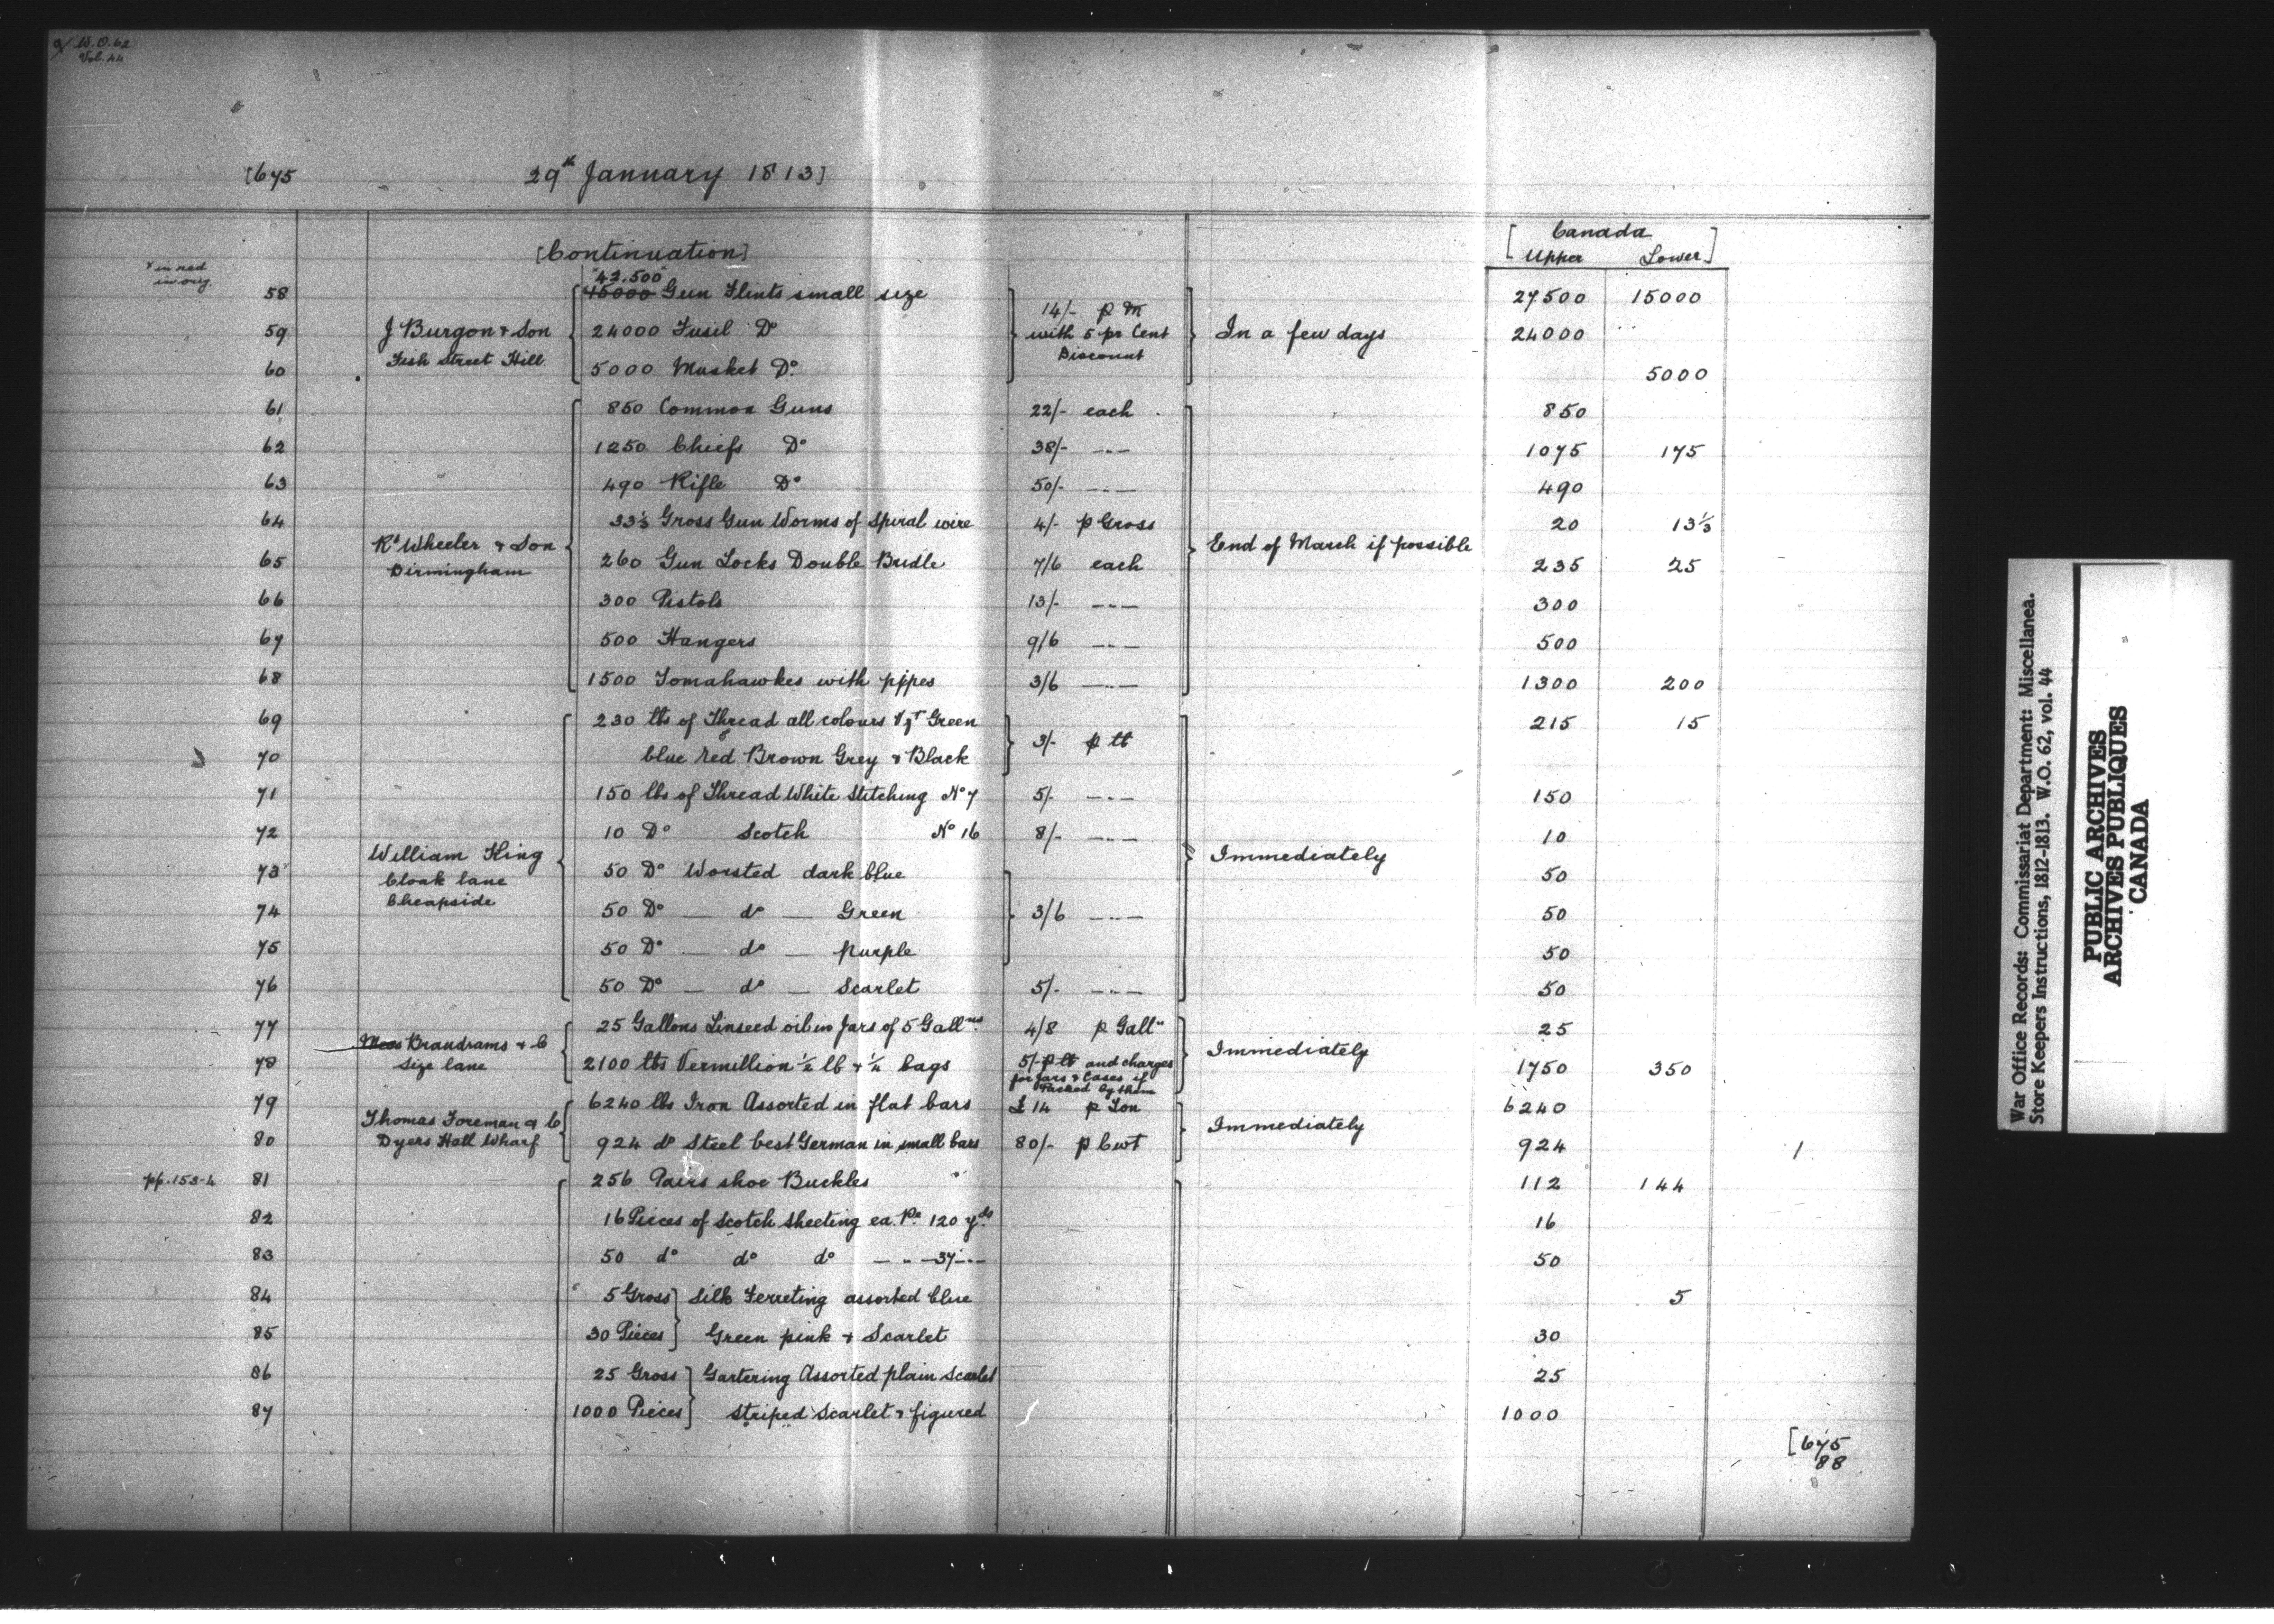 W.O. 62
Vol. 44
[675 29th January 1813]
[Continuation] [Canada
x in red in orig. [Upper Lower]
"42.500"
58 45000 Gun Flints small size 14/- p M 27500 15000
59 J Burgon & Son 24000 Fusil Do with 5 pr Cent In a few days 24000
Fish Street Hill Discount
60 5000 Musket Do 5000
61 850 Common Guns 22/- each 850
62 1250 Chiefs Do 38/- -..- 1075 175
63 490 Rifle Do 50/- -..- 490
64 33⅓ Gross Gun Worms of Spiral wire 4/- p Gross 20 13⅓
Rd Wheeler & Son End of March if possible
65 Birmingham 260 Gun Locks Double Bridle 7/6 each 235 25
66 300 Pistols 13/- -..- 300
67 500 Hangers 9/6 -..- 500
68 1500 Tomahawkes with pipes 3/6 -..- 1300 200
69 230 lbs of Thread all colours Vzt Green 215 15
3/- p lb
70 blue red Brown Grey & Black
71 150 lbs of Thread White Stitching No 7 5/- -..- 150
72 10 Do Scotch No 16 8/- -..- 10
William King Immediately
73 Cloak lane 50 Do Worsted dark blue 50
Cheapside
74 50 Do — do — Green 3/6 -..- 50
75 50 Do — do — purple 50
76 50 Do — do — Scarlet 5/- -..- 50
77 25 Gallons Linseed oil in Jars of 5 Gallns 4/8 p Galln 25
Mess Brandrams & C Immediately
78 Size lane 2100 lbs Vermillion ½ lb & ¼ bags 5/- p lb and charges 1750 350
for Jars & Cases if
Packed by them
79 6240 lbs Iron Assorted in flat bars £14 p Ton 6240
Thomas Foreman & C Immediately
80 Dyers Hall Wharf 924 do Steel best German in small bars 80/- p Cwt 924 1
pp. 153-4 81 256 Pairs shoe Buckles 112 144
82 16 Pieces of Scotch sheeting ea. Pe 120 yds 16
83 50 do do do — .. — 37 -..- 50
84 5 Gross] Silk Ferreting assorted blue 5
85 30 Pieces] Green pink & Scarlet 30
86 25 Gross] Gartering Assorted plain Scarlet 25
87 1000 Pieces] striped Scarlet & figured 1000
[675
88
War Office Records: Commissariat Department: Miscellanea.
Store Keepers Instructions, 1812-1813. W.O. 62, vol. 44
PUBLIC ARCHIVES
ARCHIVES PUBLIQUES
CANADA